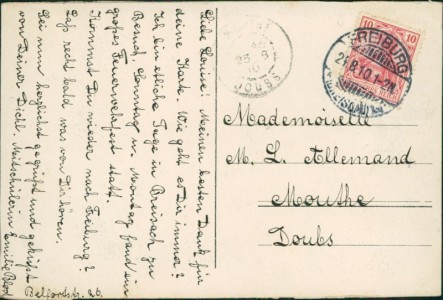 Liebe Louise! Meinen besten Dank für
deine Karte. Wie geht es Dir immer?
Ich bin etliche Tage in Breisach zu
Besuch. Sonntag u. Montag fand ein
großes Feuerwehrfest statt.
Kommst Du wieder nach Freiburg?
Laß recht bald was von Dir hören.
Sei nun herzlichst gegrüßt und geküßt
von Deiner Dich l. Mitschülerin Emilie
Belfordstr. 26.
JOUBS
10
10
FREIBURG
24.8.10.1-2
(BREISGAU)
Mademoiselle
M. L. Allemand
Mouthe
Doubs